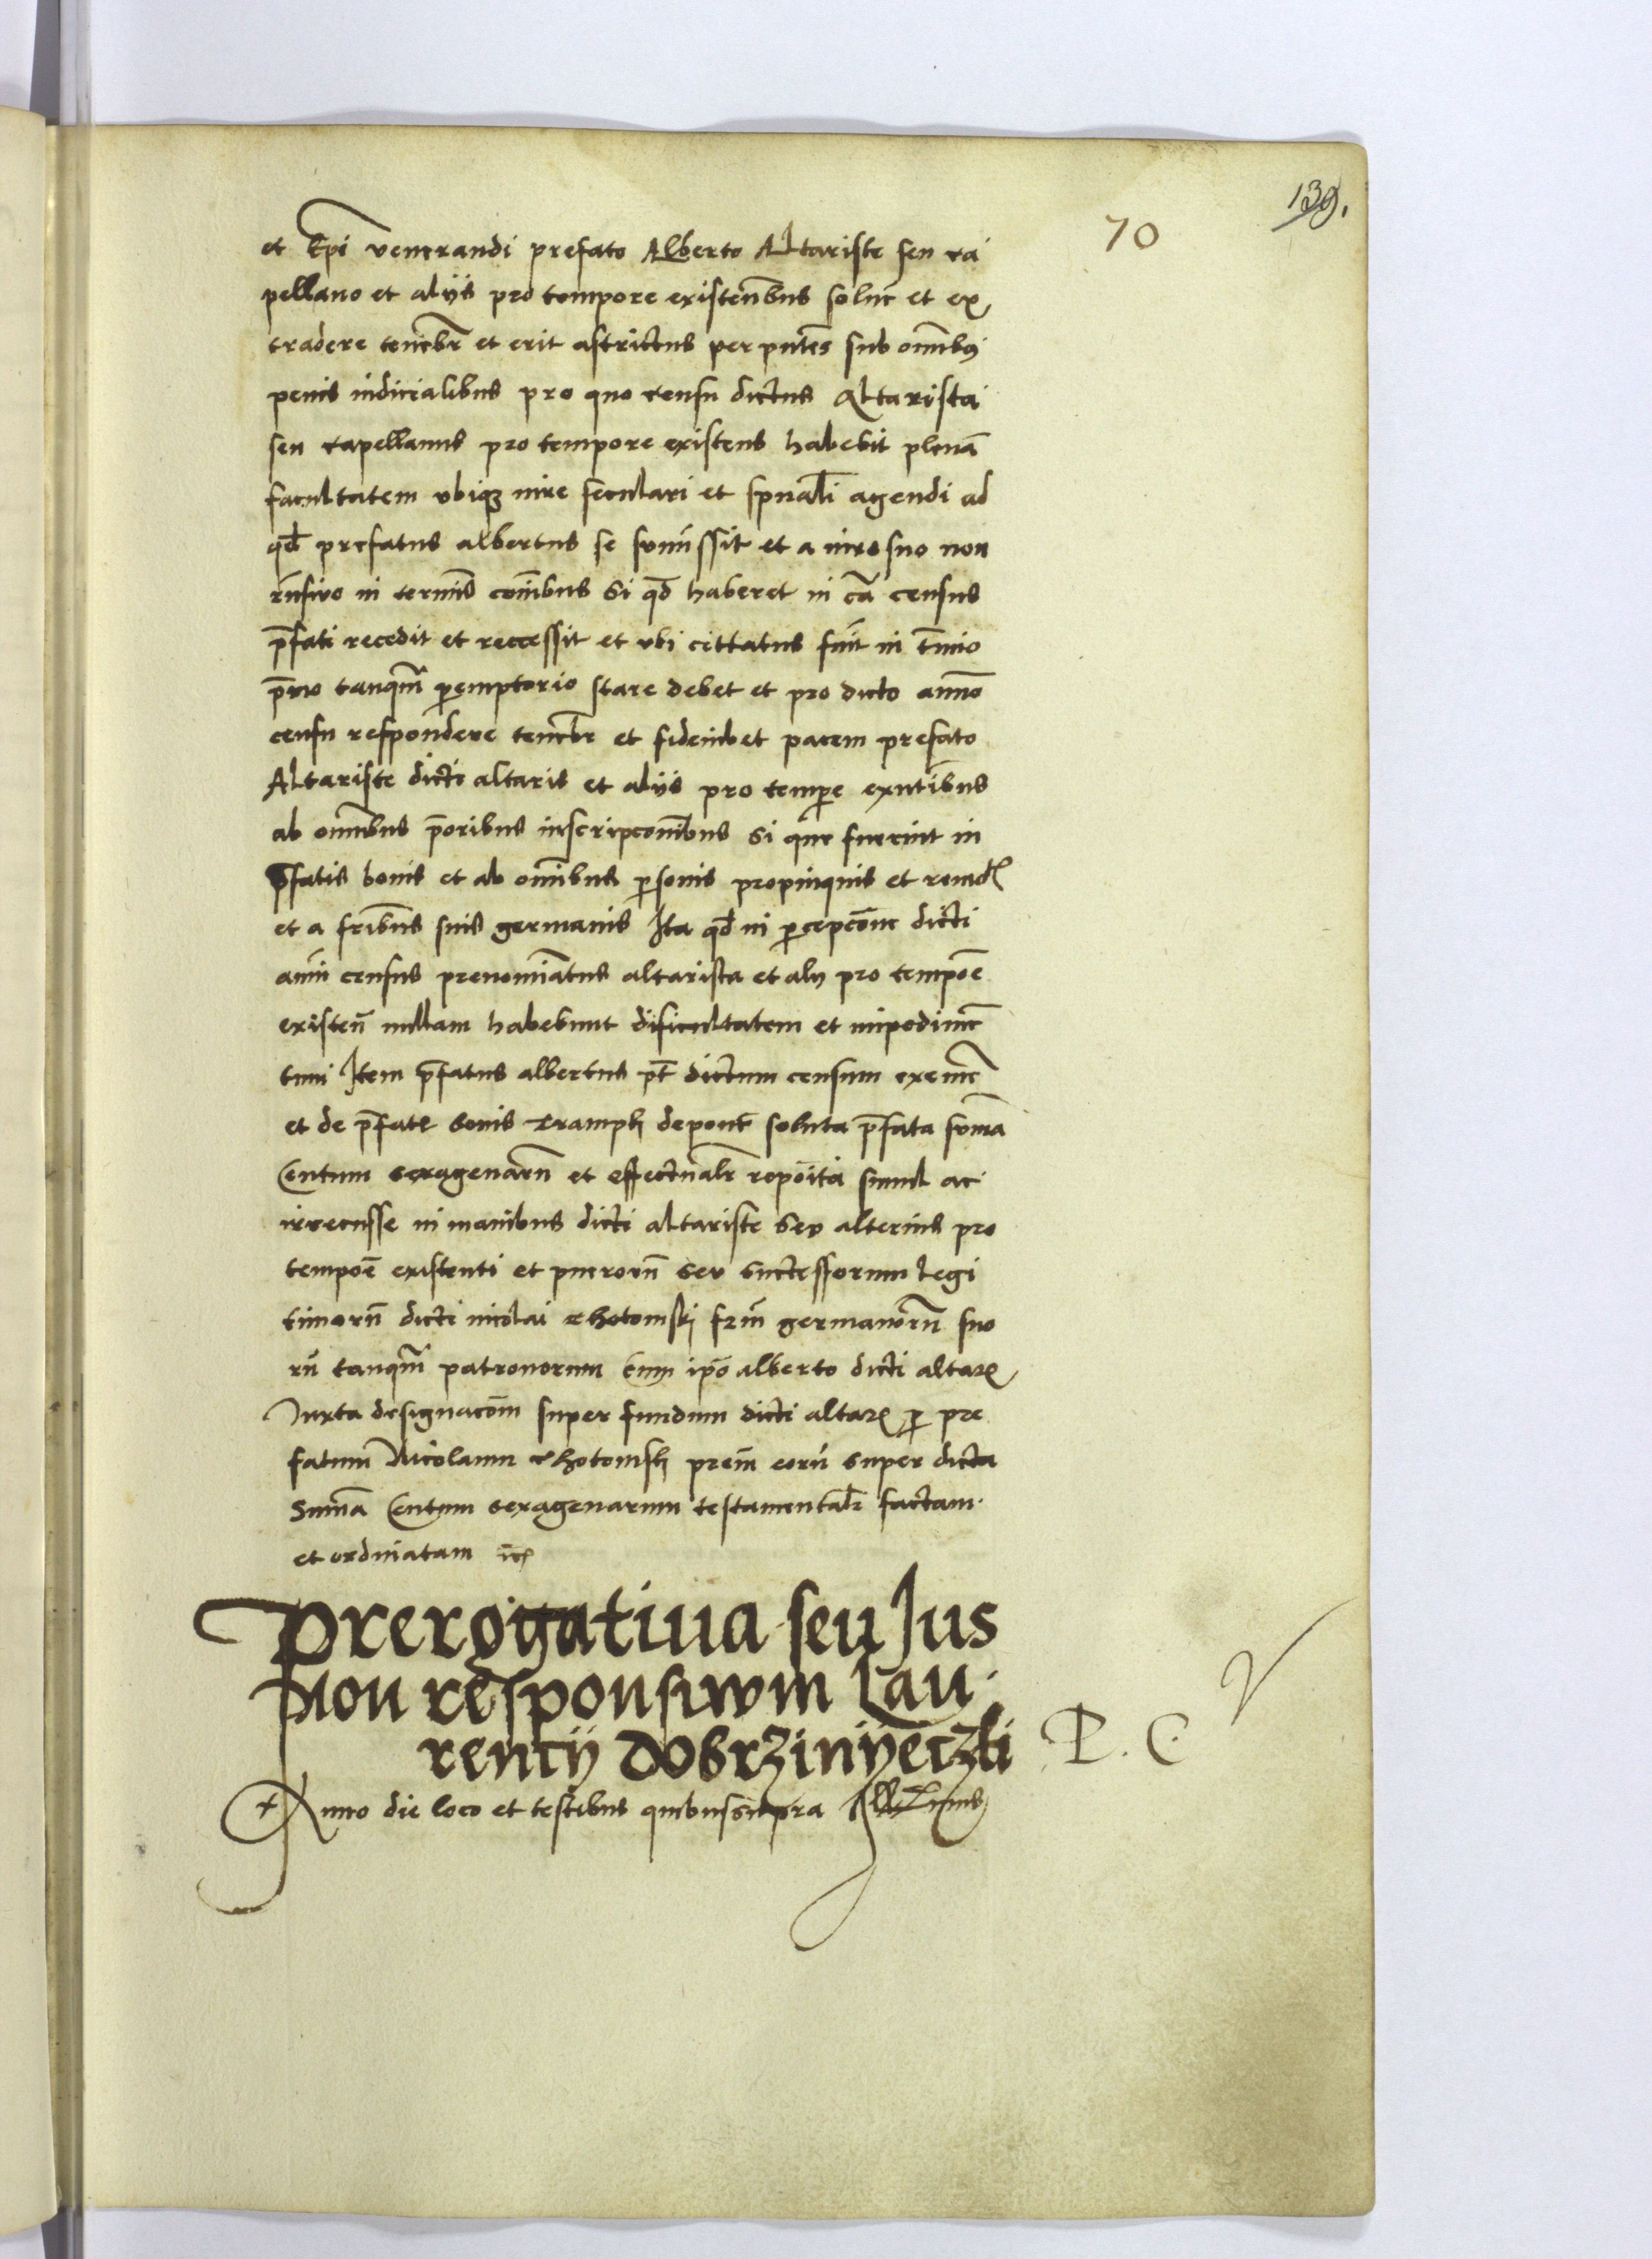 139.
70
et Epi venerandi prefato Alberto Altariste seu ca
pellano et alijs pro tempore existentibus soluere et ex
tradere tenebr et erit astrictus per pntes sub omnibus
penis iudicialibus pro quo censu dictus Altarista
seu capellanus pro tempore existens habebit plenā
facultatem vbiqz iure seculari et spuali agendi ad
qd prefatus albertus se summissit et a iure suo non
rnsiuo in terminis comibus si qd haberet in cā census
pfati recedit et recessit et vbi cittatus fuit in tmio
pmo tanqm peremptorio stare debet et pro dicto annuo
censu respondere tenebr et fideiubet pacem prefato
Altariste dicti altaris et alijs pro tempore exntibus
ab omnibus prioribus inscripconibus si que fuerint in
pfatis bonis et ab omnibus personis propinquis et remotis
et a fribus suis germanis Ita qd in percepcone dicti
annui census prenominatus altarista et alij pro tempore
existen nullam habebunt dificultatem et impedimen
tum Item pfatus albertus pt dictum censum exemere
et de pfatis bonis deponere soluta pfata suma
Centum sexagenarum et effectualr reposita simul ac
irrecusse in manibus dicti altariste seu alterius pro
tempore existenti et puerorum seu successorum legi
timorum dicti nicolai Chotomski frm germanorum suo
rū tanqm patronorum cum ipo alberto dicti altaris
Iuxta designacom super fundum dicti altaris per pre
fatum Nicolaum Chotomski prem eorū super dicta
Sumā Centum sexagenarum testamentalr factam
et ordinatam etc
Prerogatiua seu Jus
Non responsiwm Lau
rencij Dobrzinijeczki
P. C.
Anno die loco et testibus quibus supra